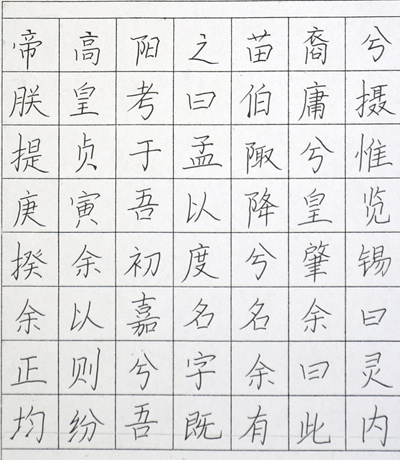 帝高阳之苗裔兮
朕皇考曰伯庸摄
提贞于孟陬兮惟
庚寅吾以降皇览
揆余初度兮肇锡
余以嘉名名余曰
正则兮字余曰灵
均纷吾既有此内